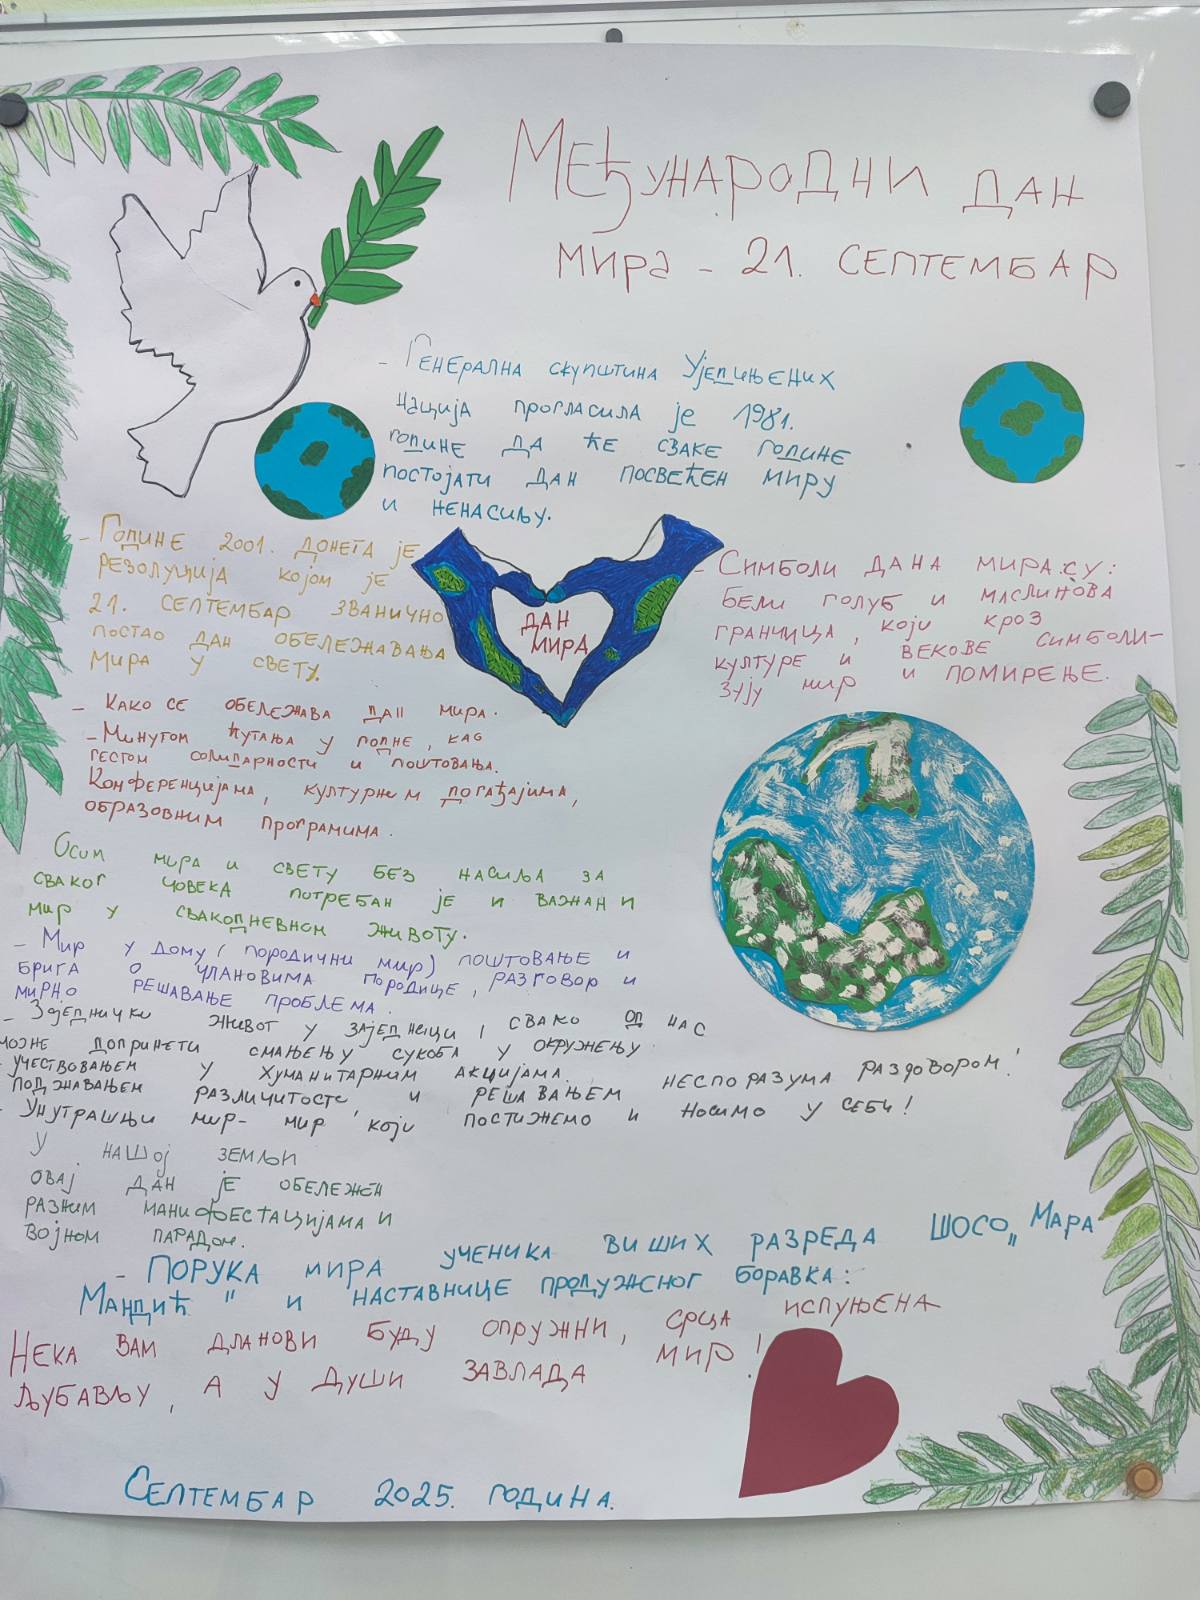 Међународни дан
мира - 21. септембар
- Генерална скупштина Уједињених
нација прогласила је 1981.
године да ће сваке године
постојати дан посвећен миру
и ненасиљу.
- Године 2001. донета је
резолуција којом је
21. септембар званично
постао дан обележавања
мира у свету.
ДАН
МИРА
- Симболи дана мира су:
бели голуб и маслинова
гранчица, који кроз
културе и векове симболи-
зују мир и помирење.
- Како се обележава дан мира.
- Минутом ћутања у подне, као
гестом солидарности и поштовања.
Конференцијама, културним догађајима,
образовним програмима.
Осим мира и свету без насиља за
сваког човека потребан је и важан и
мир у свакодневном животу.
- Мир у дому (породични мир) поштовање и
брига о члановима породице, разговор и
мирно решавање проблема.
- Заједнички живот у заједници, свако од нас
може допринети смањењу сукоба у окружењу
- учествовањем у хуманитарним акцијама.
подржавањем различитости, и решавањем неспоразума раздовором!
- Унутрашњи мир- мир који постижемо и носимо у себи!
У нашој земљи
овај дан је обележен
разним манифестацијама и
војном парадом.
- Порука мира ученика виших разреда ШОСО „Мара
Мандић " и наставнице продуженог боравка:
Нека вам дланови буду опружни, срца испуњена
љубављу, а у души завлада мир!
Септембар 2025. година.